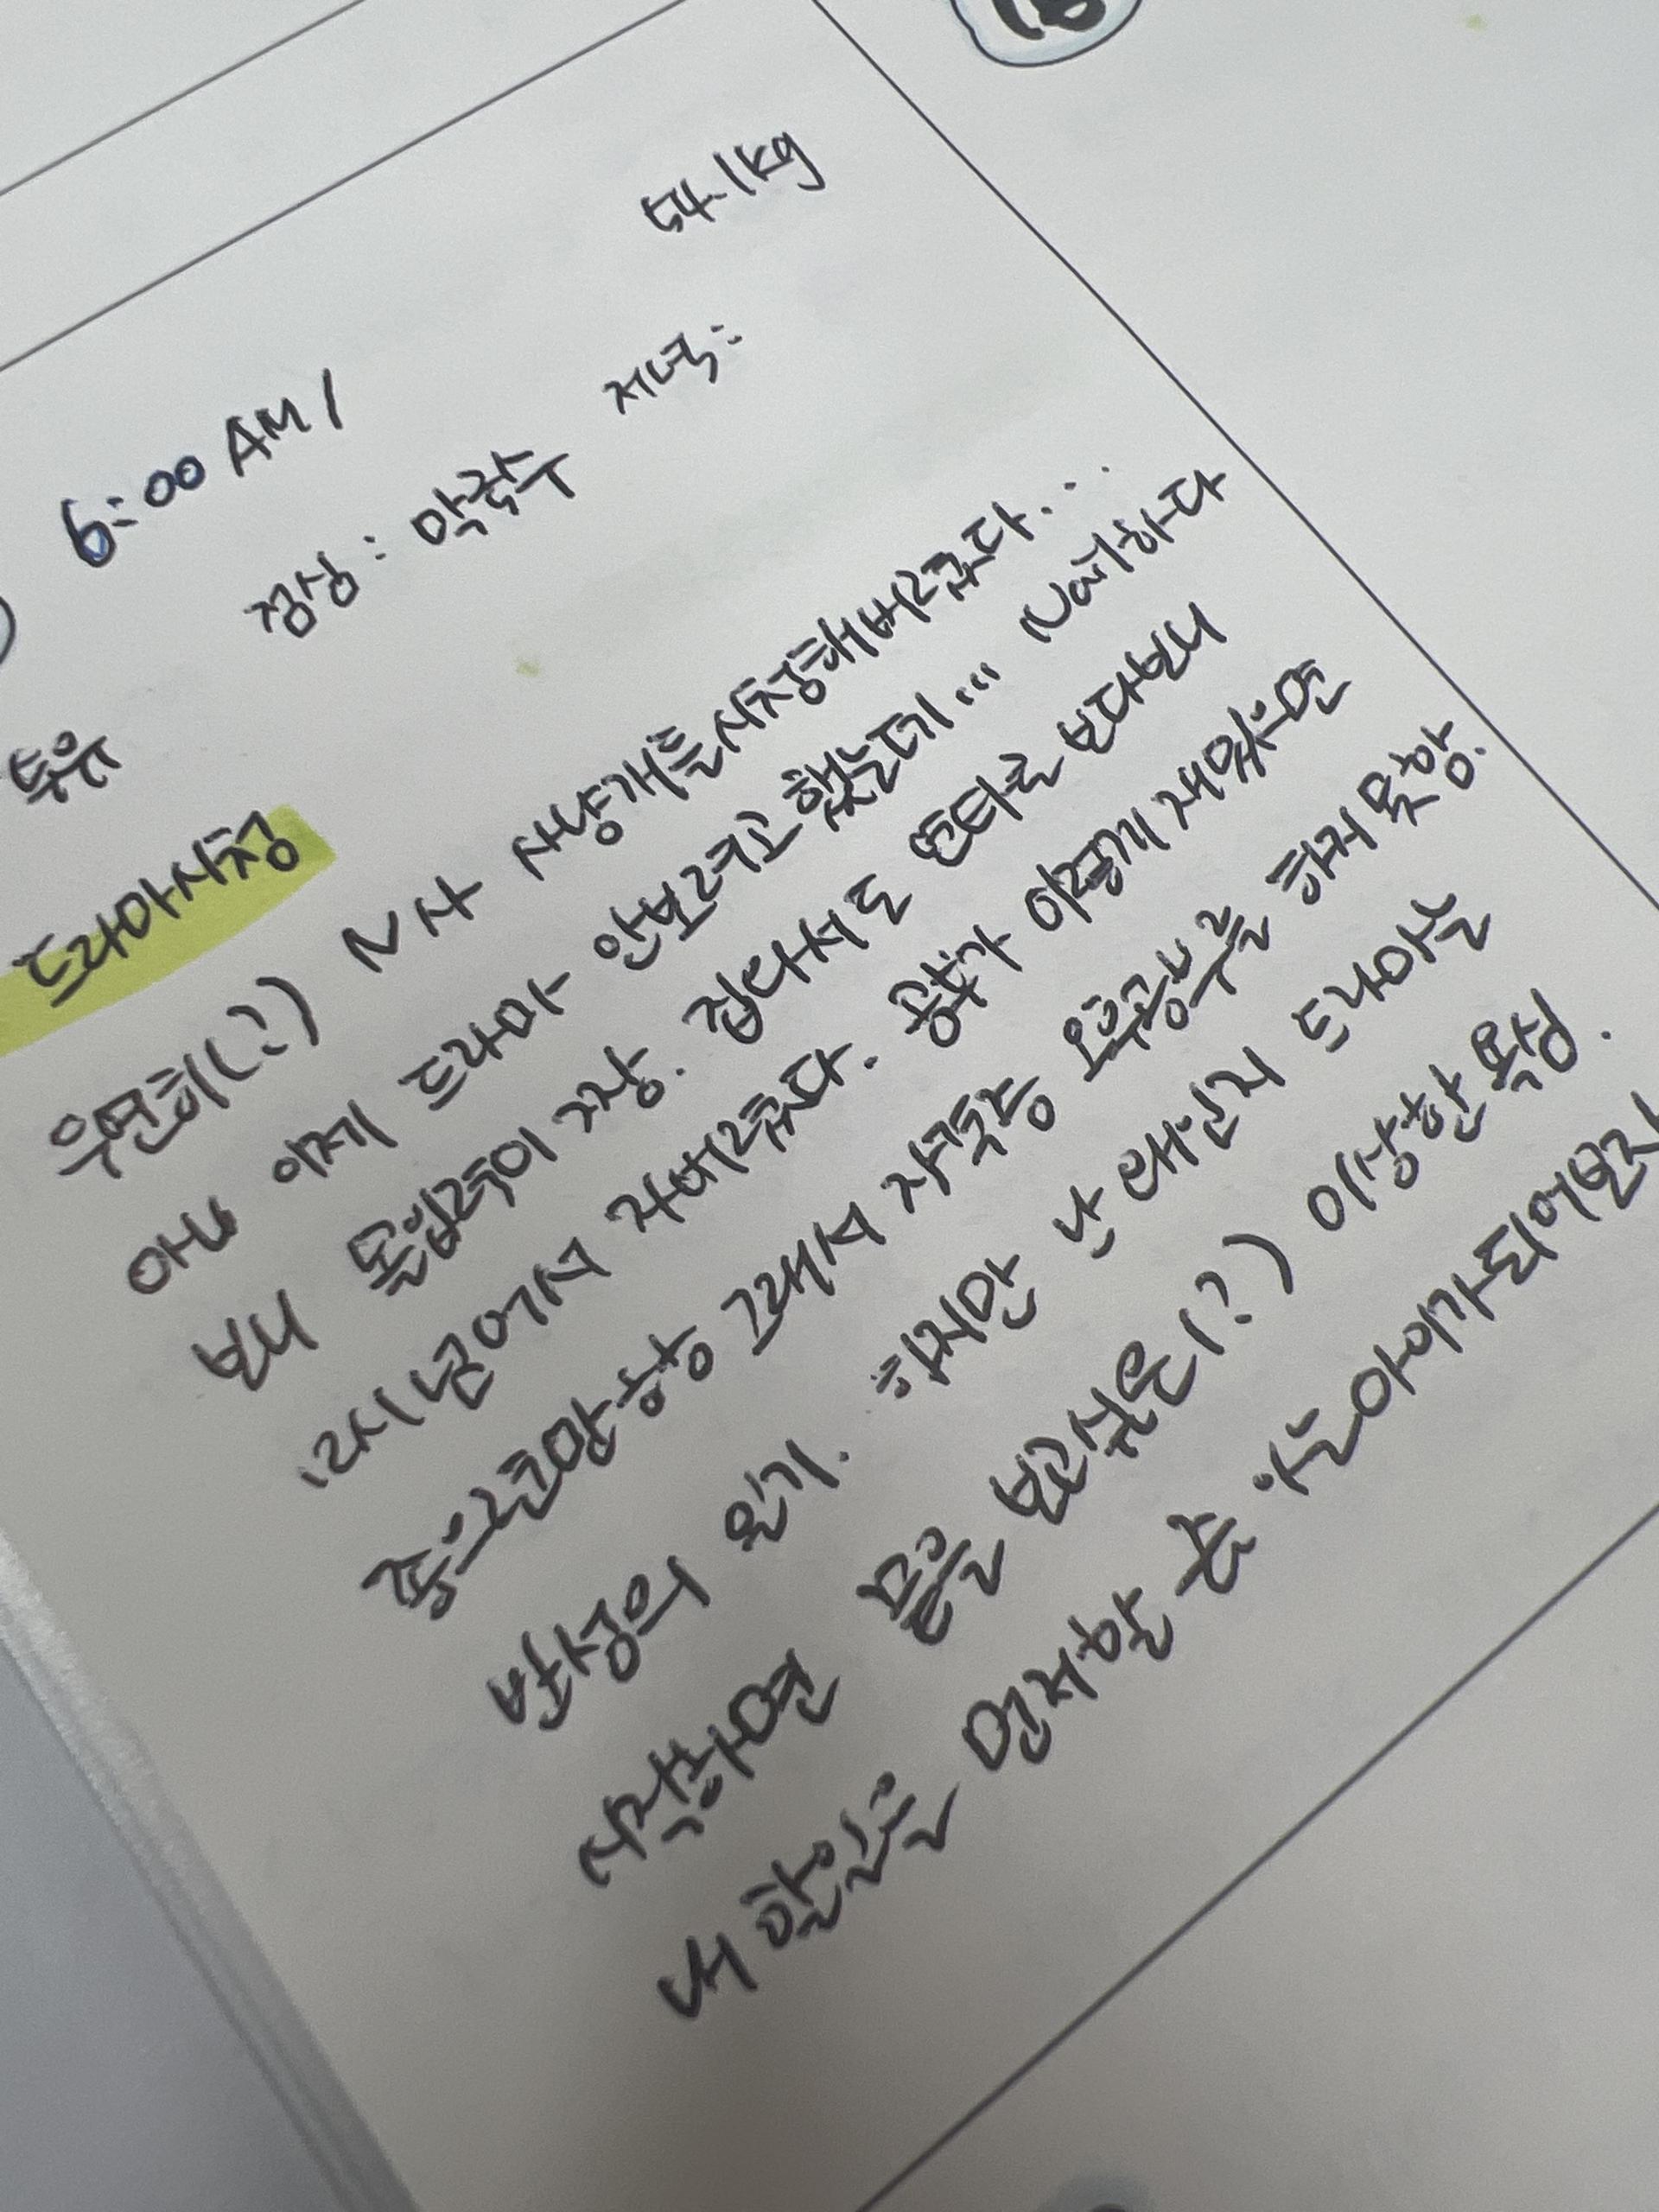 6:00 AM /
54.1kg
두유 점심 : 막국수 저녁 :
드라마시청
우연히(?) N사 사냥개들 시청해버렸다...
아니 이제 드라마 안보려고 했는데... N해하다
보니 몰입력이 지장. 집와서도 연타로 보다보니
12시 넘어서 자버렸다. 공부가 이렇게 재밌으면
좋으련만ㅎㅎ 그래서 자극증 오후공부를 하지 못함.
반성의 일기. 하지만 난 왜인지 드라마는
시작하면 끝을 보고싶은(?) 이상한 욕심.
내 할일을 먼저할 수 있는 아이가 되어보자